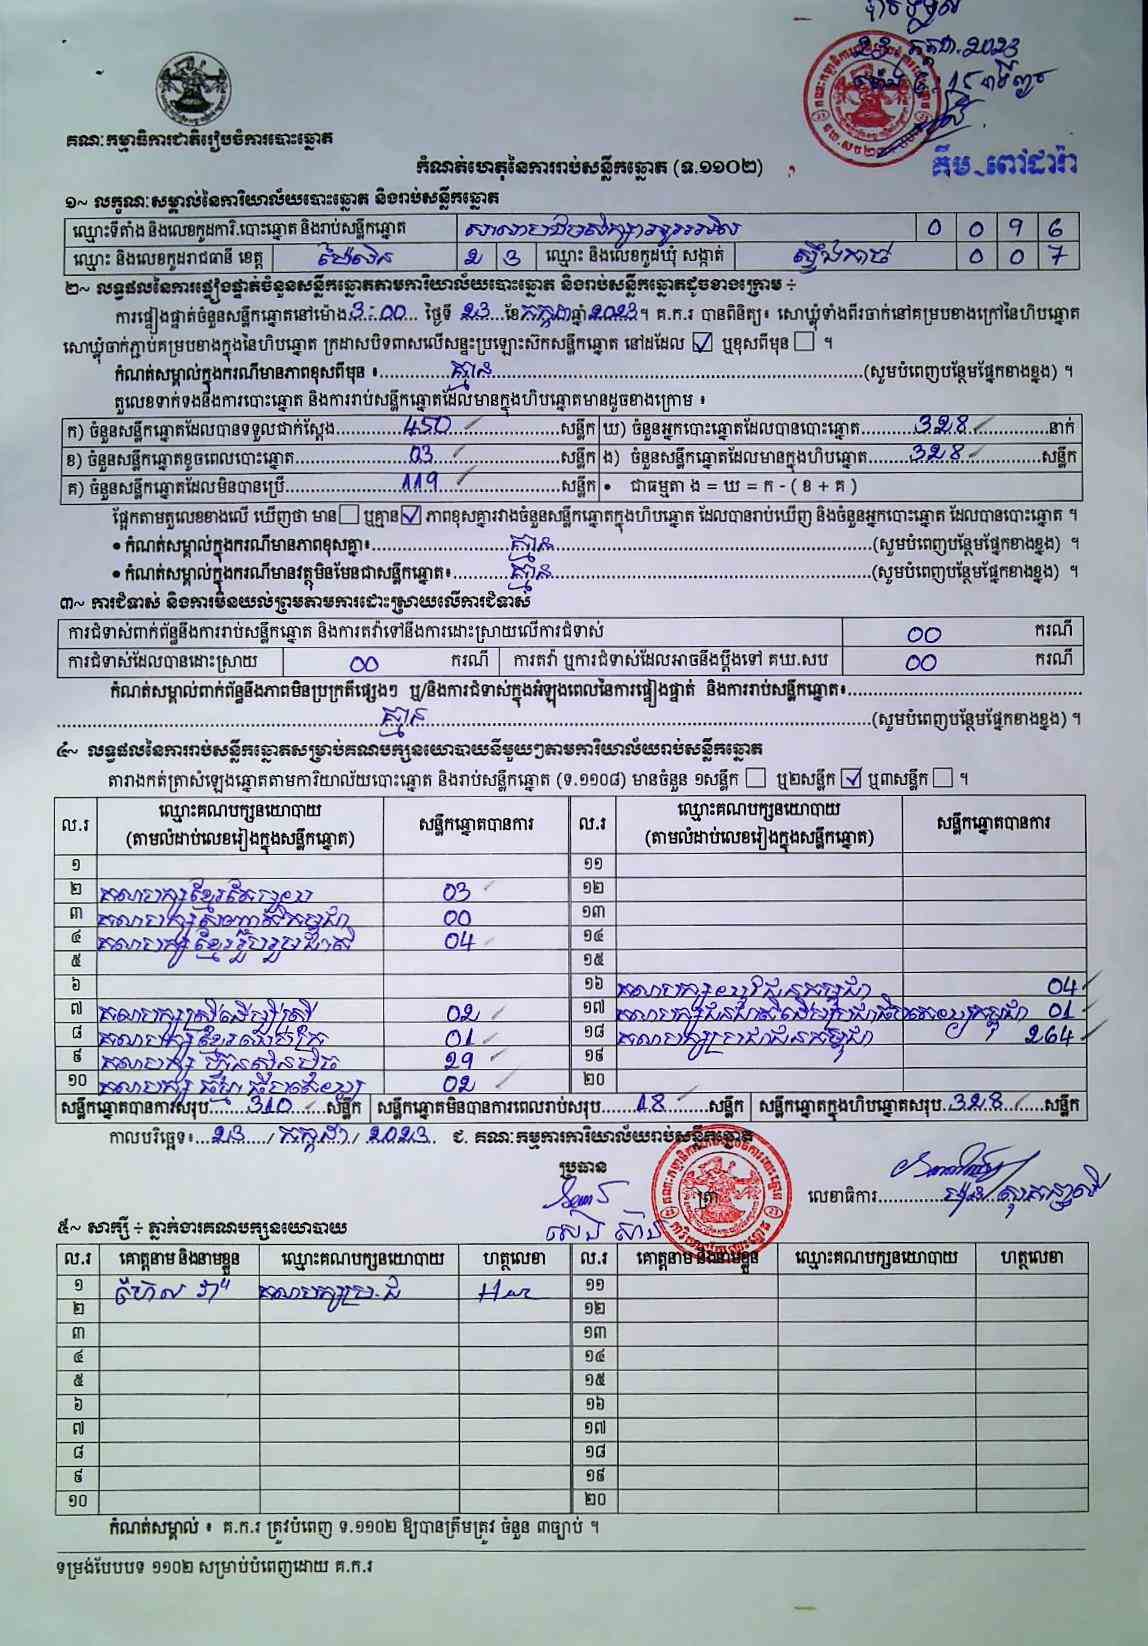 ២៣ កក្កដា.2023
គណៈកម្មាធិការជាតិរៀបចំការបោះឆ្នោត
គឹម ពៅដារ៉ា
កំណត់ហេតុនៃការរាប់សន្លឹកឆ្នោត (ទ.១១០២)
១~ លក្ខណៈសម្គាល់នៃការិយាល័យបោះឆ្នោត និងរាប់សន្លឹកឆ្នោត
ឈ្មោះទីតាំង និងលេខកូដការិ.បោះឆ្នោត និងរាប់សន្លឹកឆ្នោត 0 0 9 6
ឈ្មោះ និងលេខកូដរាជធានី ខេត្ត ប៉ៃលិន 2 3 ឈ្មោះ និងលេខកូដឃុំ សង្កាត់ ស្ទឹងកាច់ 0 0 7
២~ លទ្ធផលនៃការផ្ទៀងផ្ទាត់ចំនួនសន្លឹកឆ្នោតតាមការិយាល័យបោះឆ្នោត និងរាប់សន្លឹកឆ្នោតដូចខាងក្រោម ÷
ការផ្ទៀងផ្ទាត់ចំនួនសន្លឹកឆ្នោតនៅម៉ោង3:00.... ថ្ងៃទី 23...ខែកក្កដាឆ្នាំ2023។ គ.ក.រ បានពិនិត្យ៖ សោឃ្លុំទាំងពីរចាក់នៅគម្របខាងក្រៅនៃហិបឆ្នោត
សោឃ្លុំចាក់ភ្ជាប់គម្របខាងក្នុងនៃហិបឆ្នោត ក្រដាសបិទពាសលើសន្ទះប្រឡោះស៊កសន្លឹកឆ្នោត នៅដដែល ☑ ឬខុសពីមុន ☐ ។
កំណត់សម្គាល់ក្នុងករណីមានភាពខុសពីមុន ៖..........គ្មាន..........(សូមបំពេញបន្ថែមផ្នែកខាងខ្នង) ។
តួលេខទាក់ទងនឹងការបោះឆ្នោត និងការរាប់សន្លឹកឆ្នោតដែលមានក្នុងហិបឆ្នោតមានដូចខាងក្រោម ៖
ក) ចំនួនសន្លឹកឆ្នោតដែលបានទទួលជាក់ស្ដែង..........450..........សន្លឹក ឃ) ចំនួនអ្នកបោះឆ្នោតដែលបានបោះឆ្នោត..........328..........នាក់
ខ) ចំនួនសន្លឹកឆ្នោតខូចពេលបោះឆ្នោត..........03..........សន្លឹក ង) ចំនួនសន្លឹកឆ្នោតដែលមានក្នុងហិបឆ្នោត..........328..........សន្លឹក
គ) ចំនួនសន្លឹកឆ្នោតដែលមិនបានប្រើ..........119..........សន្លឹក • ជាធម្មតា ង = ឃ = ក - ( ខ + គ )
ផ្អែកតាមតួលេខខាងលើ ឃើញថា មាន☐ ឬគ្មាន☑ ភាពខុសគ្នារវាងចំនួនសន្លឹកឆ្នោតក្នុងហិបឆ្នោត ដែលបានរាប់ឃើញ និងចំនួនអ្នកបោះឆ្នោត ដែលបានបោះឆ្នោត ។
• កំណត់សម្គាល់ក្នុងករណីមានភាពខុសគ្នា៖..........គ្មាន..........(សូមបំពេញបន្ថែមផ្នែកខាងខ្នង) ។
• កំណត់សម្គាល់ក្នុងករណីមានវត្ថុមិនមែនជាសន្លឹកឆ្នោត៖..........គ្មាន..........(សូមបំពេញបន្ថែមផ្នែកខាងខ្នង) ។
៣~ ការជំទាស់ និងការមិនយល់ព្រមតាមការដោះស្រាយលើការជំទាស់
ការជំទាស់ពាក់ព័ន្ធនឹងការរាប់សន្លឹកឆ្នោត និងការតវ៉ាទៅនឹងការដោះស្រាយលើការជំទាស់ 00 ករណី
ការជំទាស់ដែលបានដោះស្រាយ 00 ករណី ការតវ៉ា ឬការជំទាស់ដែលអាចនឹងប្ដឹងទៅ គឃ.សប 00 ករណី
កំណត់សម្គាល់ពាក់ព័ន្ធនឹងភាពមិនប្រក្រតីផ្សេងៗ ឬ/និងការជំទាស់ក្នុងអំឡុងពេលនៃការផ្ទៀងផ្ទាត់ និងការរាប់សន្លឹកឆ្នោត៖..........
..........គ្មាន..........(សូមបំពេញបន្ថែមផ្នែកខាងខ្នង) ។
៤~ លទ្ធផលនៃការរាប់សន្លឹកឆ្នោតសម្រាប់គណបក្សនយោបាយនីមួយៗតាមការិយាល័យរាប់សន្លឹកឆ្នោត
តារាងកត់ត្រាសំឡេងឆ្នោតតាមការិយាល័យបោះឆ្នោត និងរាប់សន្លឹកឆ្នោត (ទ.១១០៨) មានចំនួន ១សន្លឹក ☐ ឬ២សន្លឹក ☑ ឬ៣សន្លឹក ☐ ។
ល.រ ឈ្មោះគណបក្សនយោបាយ (តាមលំដាប់លេខរៀងក្នុងសន្លឹកឆ្នោត) សន្លឹកឆ្នោតបានការ ល.រ ឈ្មោះគណបក្សនយោបាយ (តាមលំដាប់លេខរៀងក្នុងសន្លឹកឆ្នោត) សន្លឹកឆ្នោតបានការ
១ ១១
២ គណបក្សខ្មែរតែមួយ 03 ១២
៣ គណបក្សសញ្ជាតិកម្ពុជា 00 ១៣
៤ គណបក្សខ្មែររួបរួមជាតិ 04 ១៤
៥ ១៥
៦ ១៦ គណបក្សយុវជនកម្ពុជា 04
៧ គណបក្សស្រីដើម្បីស្រី 02 ១៧ គណបក្សជនជាតិដើមប្រជាធិបតេយ្យកម្ពុជា 01
៨ គណបក្សខ្មែរឈប់ក្រ 01 ១៨ គណបក្សប្រជាជនកម្ពុជា 264
៩ គណបក្ស ហ្វ៊ុនស៊ិនប៉ិច 29 ១៩
១០ គណបក្ស ធម្មាធិបតេយ្យ 02 ២០
សន្លឹកឆ្នោតបានការសរុប.......310.......សន្លឹក សន្លឹកឆ្នោតមិនបានការពេលរាប់សរុប.......18.......សន្លឹក សន្លឹកឆ្នោតក្នុងហិបឆ្នោតសរុប.328......សន្លឹក
កាលបរិច្ឆេទ៖...23.../ កក្កដា / 2023.. ជ. គណៈកម្មការការិយាល័យរាប់សន្លឹកឆ្នោត
ប្រធាន ត្រា លេខាធិការ..........
សេង ស៊ាង
៥~ សាក្សី ÷ ភ្នាក់ងារគណបក្សនយោបាយ
ល.រ គោត្តនាម និងនាមខ្លួន ឈ្មោះគណបក្សនយោបាយ ហត្ថលេខា ល.រ គោត្តនាម និងនាមខ្លួន ឈ្មោះគណបក្សនយោបាយ ហត្ថលេខា
១ គណបក្សប្រ.ជ ១១
២ ១២
៣ ១៣
៤ ១៤
៥ ១៥
៦ ១៦
៧ ១៧
៨ ១៨
៩ ១៩
១០ ២០
កំណត់សម្គាល់ ៖ គ.ក.រ ត្រូវបំពេញ ទ.១១០២ ឱ្យបានត្រឹមត្រូវ ចំនួន ៣ច្បាប់ ។
ទម្រង់បែបបទ ១១០២ សម្រាប់បំពេញដោយ គ.ក.រ